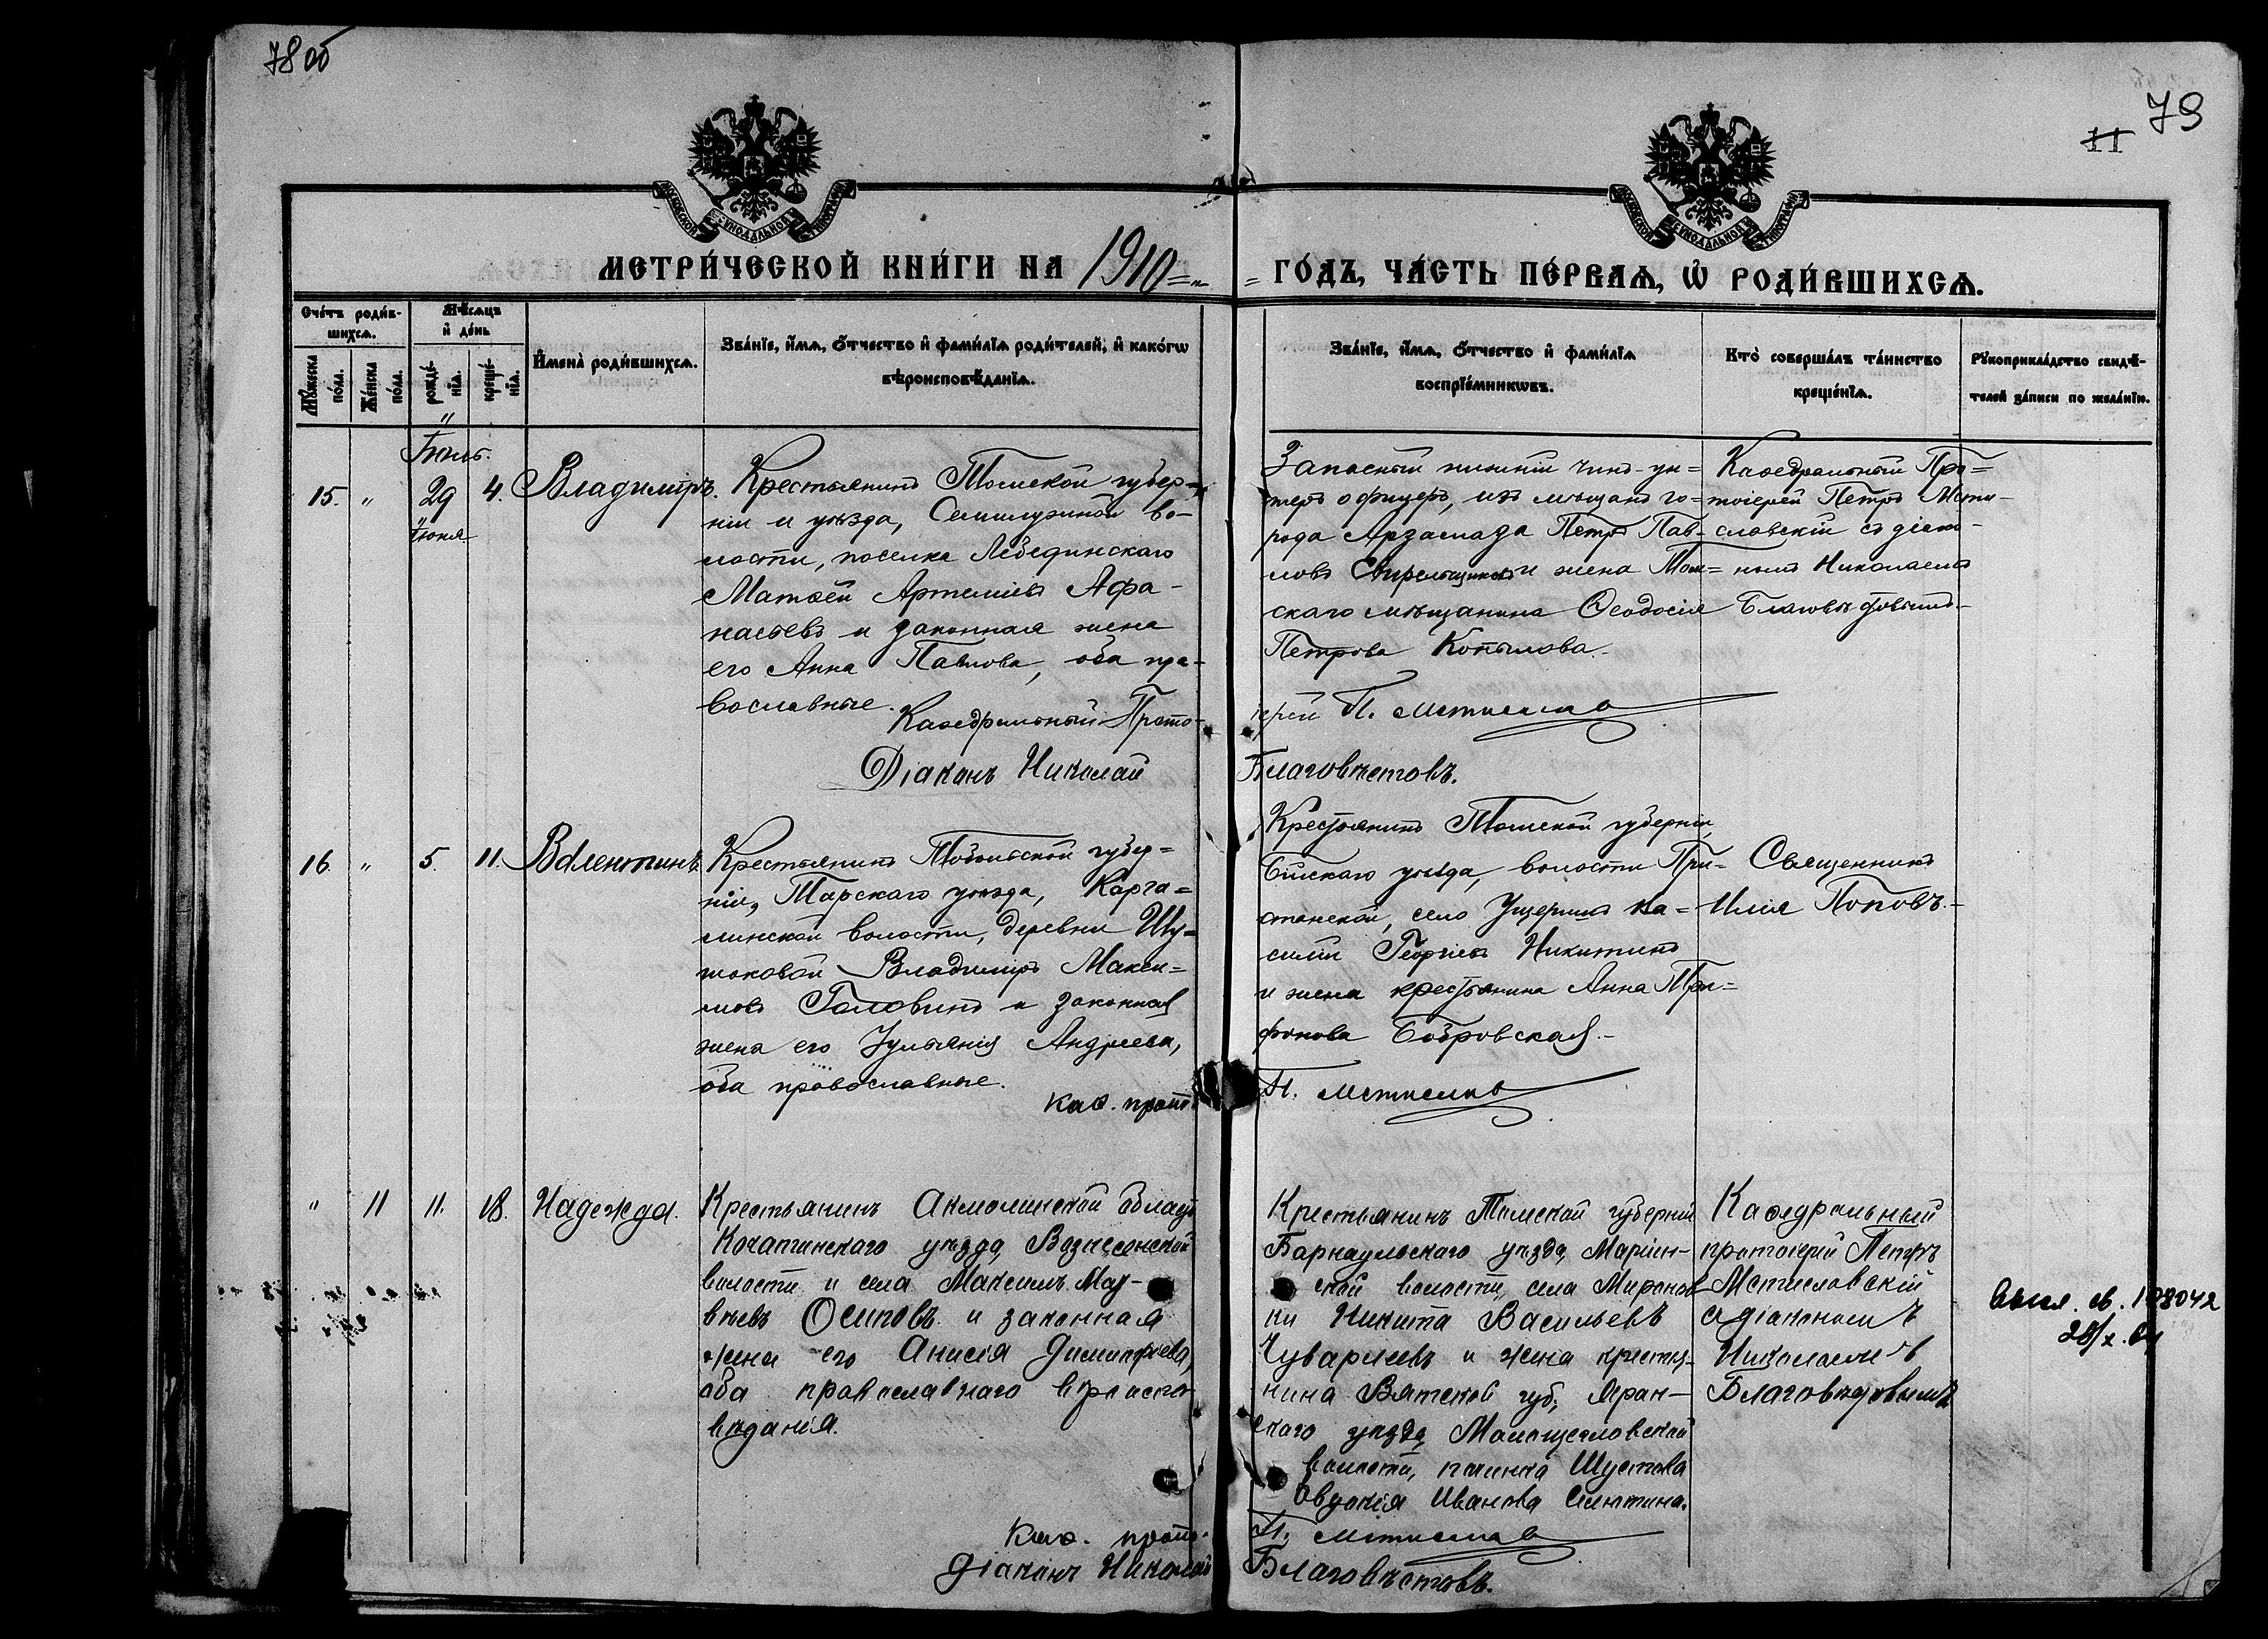 78 об
79
11
МОСКОВСКОЙ СѴНОДАЛЬНОЙ ТИПОГРАФІИ
МОСКОВСКОЙ СѴНОДАЛЬНОЙ ТИПОГРАФІИ
МЕТРИ́ЧЕСКОЙ КНИ́ГИ НА 1910
ГО́ДЪ, ЧА́СТЬ ПЕ́РВАѦ, Ѡ҆ РОДИ́ВШИХСѦ.
Сче́тъ роди́в-
шихсѧ.
Мѣ́сѧцъ
и҆ де́нь
Мꙋ́жеска
по́ла.
Же́нска
по́ла.
рожде́-
нїѧ.
креще́-
нїѧ.
И҆мена̀ роди́вшихсѧ.
Зва́нїе, и҆́мѧ, ѻ҆́тчество и҆ фами́лїѧ роди́телей, и҆ како́гѡ
вѣроисповѣ́данїѧ.
Зва́нїе, и҆́мѧ, ѻ҆́тчество и҆ фами́лїѧ
воспрїе́мникѡвъ.
Кто̀ соверша́лъ та́инство
креще́нїѧ.
Рꙋкоприкла́дство свидѣ́-
телей за́писи по жела́нїю.
Іюль.
15. " 29 4. Владимiръ.
Iюня
Крестьянинъ Томской губер-
нiи и уѣзда, Семилужной во-
лости, поселка Лебединскаго
Матѳей Артемiевъ Афа-
насьевъ и законная жена
его Анна Павлова, оба пра-
вославные.
Каѳедральный Прото-
Дiаконъ Николай
Запасный нижнiй чинъ ун-
теръ офицеръ, изъ мѣщанъ го-
рода Арзамаза Петръ Пав-
ловъ и жена Том-
скаго мѣщанина Ѳеодосiя
Петрова Копылова.
iерей П. Мстислав
Благовѣстовъ.
Каѳедральный Про-
тоiерей Петръ Мсти-
славскiй съ дiако-
номъ Николаемъ
Благовѣстовымъ
16. " 5. 11. Валентинъ.
Крестьянинъ Тобольской губер-
нiи, Тарскаго уѣзда, Карга-
линской волости, деревни Шу-
шаковой Владимiръ Макси-
мовъ Головинъ и законная
жена его Iулiанiя Андреева,
оба православные.
Каѳ. прот.
Крестьянинъ Томской губернiи,
Бiйскаго уѣзда, волости При-
станской, село Ва-
силiй Георгiевъ Никитинъ
и жена крестьянина Анна Три-
фонова Бобровская.
П. Мстислав
Священникъ
Илiя Поповъ.
" 11 11. 18. Надежда.
Крестьянинъ Акмолинской област
Кокчетинскаго уѣзда, Вознесенской
волости и села Максимъ Мат-
вѣевъ Осиповъ и законная
жена его Анисiя Димитрiева,
оба православнаго вѣроиспо-
вѣданiя.
Каѳ. прот.
Дiаконъ Николай
Крестьянинъ Томской губернiи
Барнаульскаго уѣзда, Марiин-
ской волости, села Миронов-
ки Никита Васильевъ
Чуваркевъ и жена крестья-
нина Вятской губ, Яран-
скаго уѣзда,
волости, починка Шустова
Овдокiя Иванова Силютина.
П. Мстислав
Благовѣстовъ.
Каѳедральный
протоiерей Петръ
Мстиславскiй
съ дiакономъ
Николаемъ
Благовѣстовымъ